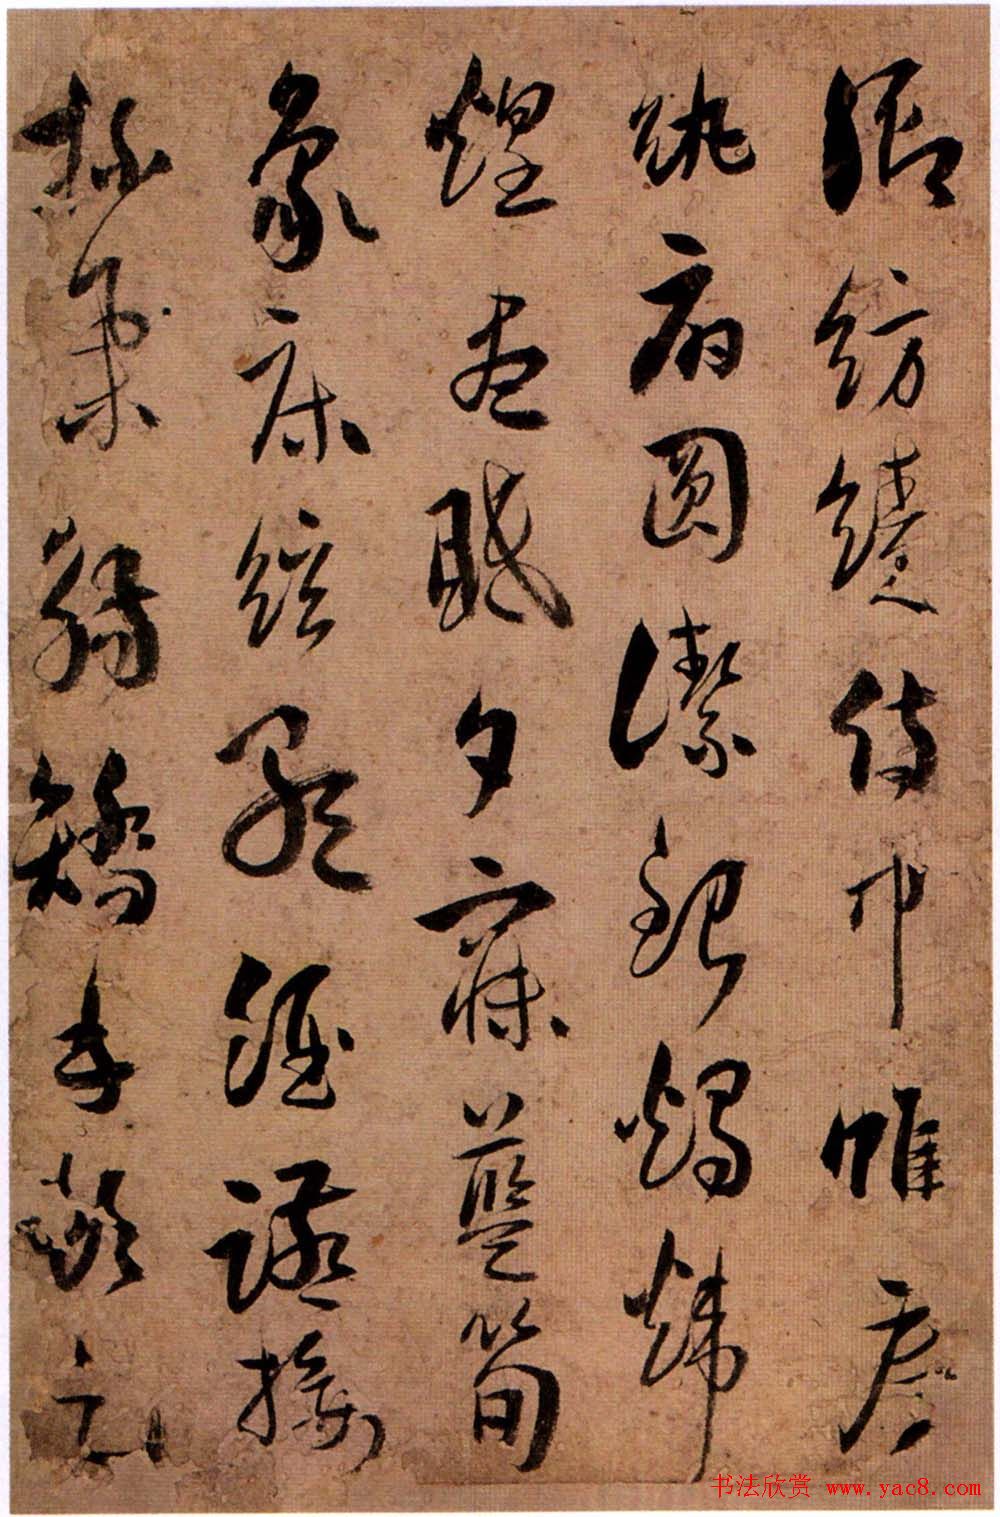 御紡績侍巾帷房
紈扇圓潔銀燭煒
煌晝眠夕寐藍筍
象床絃歌酒讌接
杯舉觴矯手頓足
书法欣赏 www.yac8.com